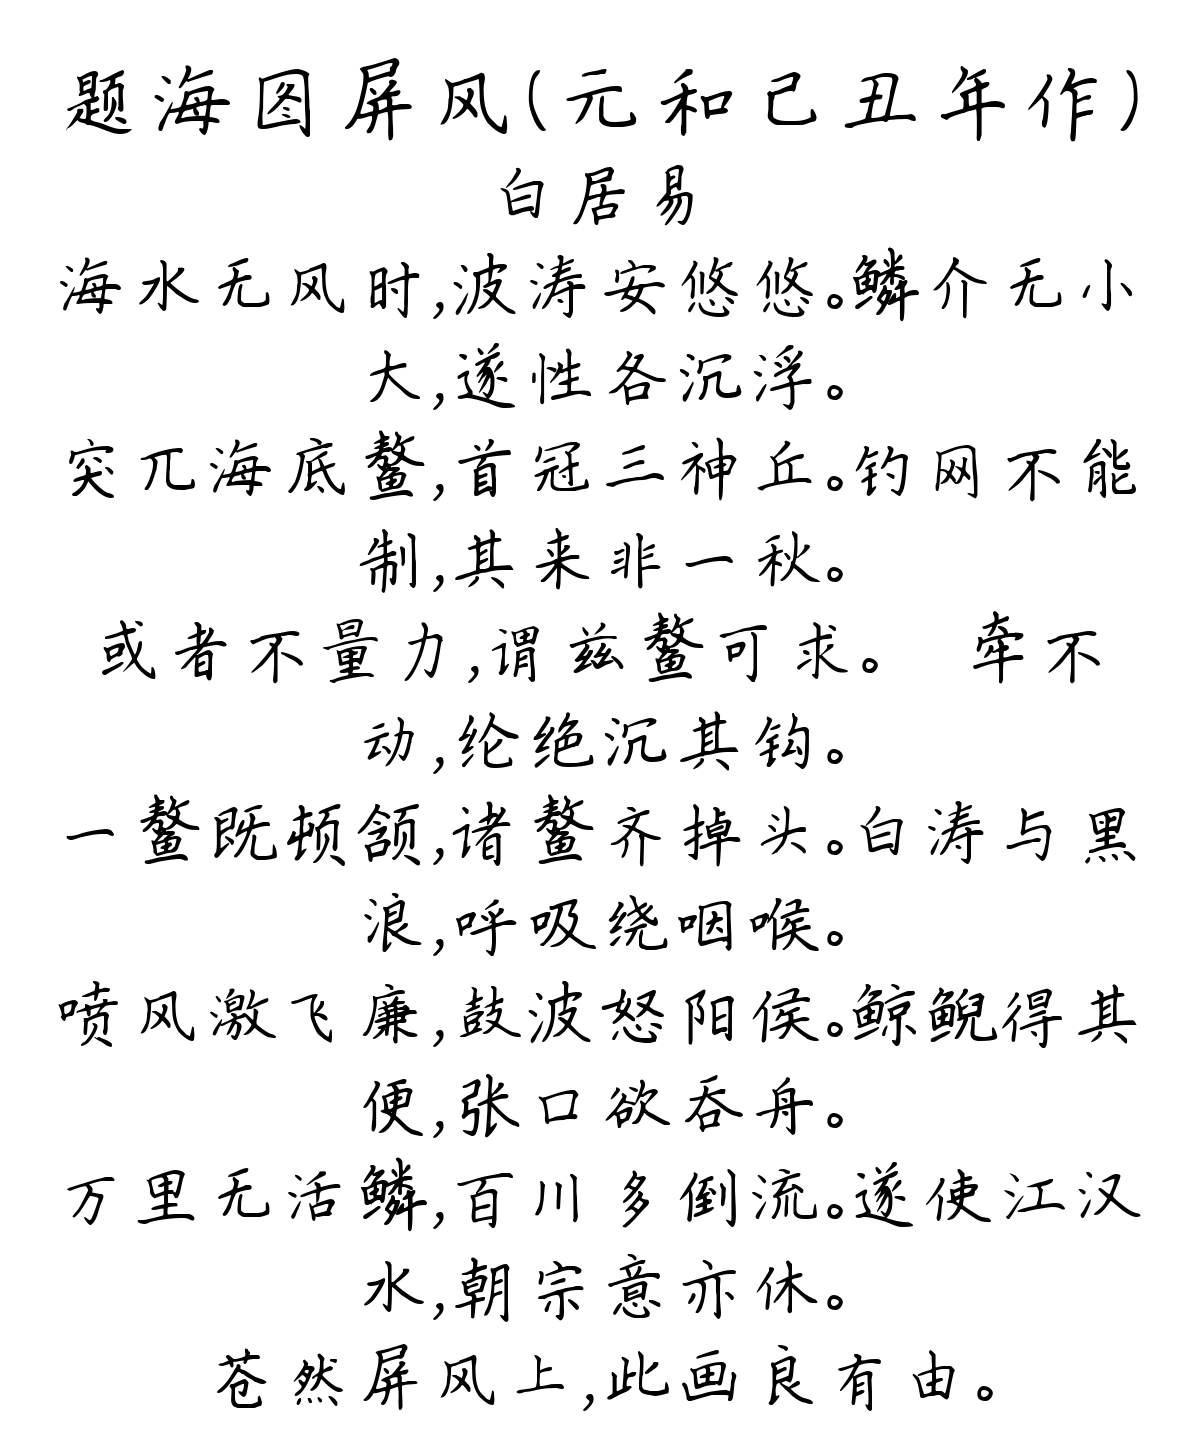 题海图屏风(元和己丑年作)
白居易
海水无风时,波涛安悠悠。鳞介无小
大,遂性各沉浮。
突兀海底鳌,首冠三神丘。钓网不能
制,其来非一秋。
或者不量力,谓兹鳌可求。 牵不
动,纶绝沉其钩。
一鳌既顿颔,诸鳌齐掉头。白涛与黑
浪,呼吸绕咽喉。
喷风激飞廉,鼓波怒阳侯。鲸鲵得其
便,张口欲吞舟。
万里无活鳞,百川多倒流。遂使江汉
水,朝宗意亦休。
苍然屏风上,此画良有由。